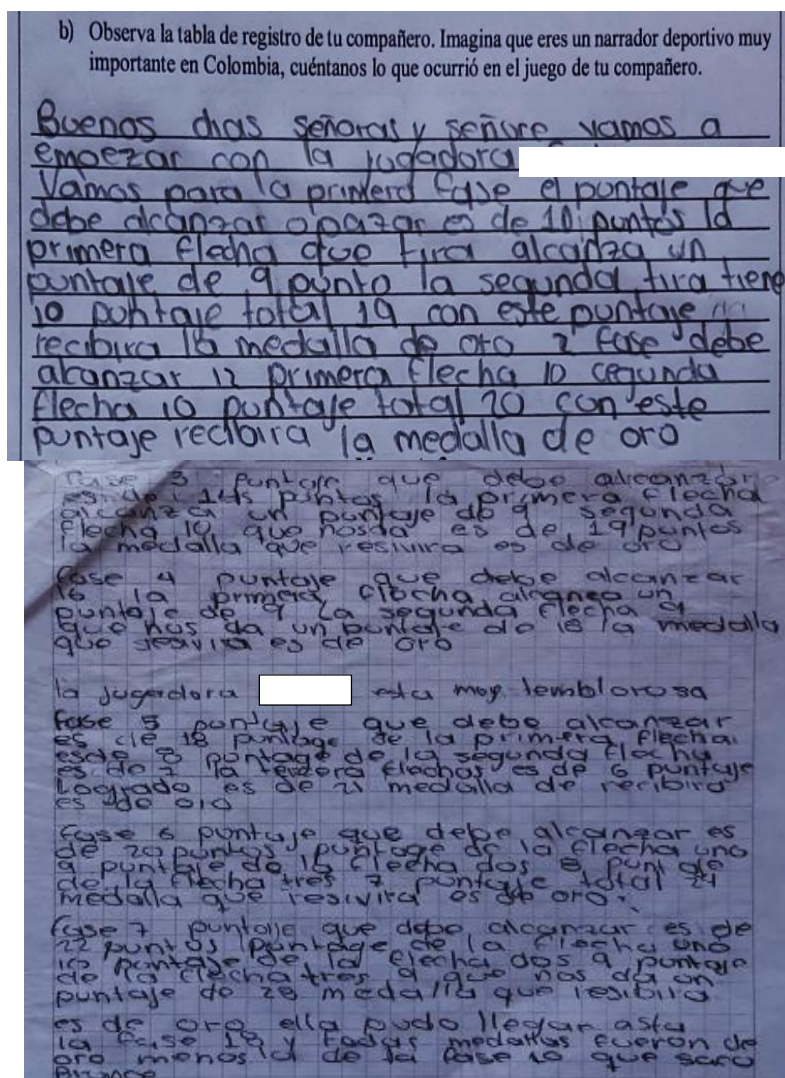 b) Observa la tabla de registro de tu compañero. Imagina que eres un narrador deportivo muy
importante en Colombia, cuéntanos lo que ocurrió en el juego de tu compañero.
Buenos dias señoras y señore vamos a
empezar con la jugadora
Vamos para la primera fase el puntaje que
debe alcanzar o pazar es de 10 puntos la
primera flecha que tira alcanza un
puntaje de 9 punto la segunda tira tiene
10 puntaje total 19 con este puntaje
recibira la medalla de oro 2 fase debe
alcanzar 12 primera flecha 10 cegunda
flecha 10 puntaje total 20 con este
puntaje recibira la medalla de oro
Fase 3 puntaje que debe alcanzar
es de 14 puntos la primera flecha
alcanza un puntaje de 9 segunda
flecha 10 que nos da es de 19 puntos
la medalla que resivira es de oro
fase 4 puntaje que debe alcanzar
16 la primera flecha alcanza un
puntaje de 9 la segunda flecha 9
que nos da un puntaje de 18 la medalla
que resivira es de oro
la jugadora esta muy temblorosa
fase 5 puntaje que debe alcanzar
es de 18 puntage de la primera flecha
es de 8 puntage de la segunda flecha
es de 7 la tercera flechas es de 6 puntaje
Logrado es de 21 medalla de recibira
es de oro
fase 6 puntaje que debe alcanzar es
de 20 puntos puntage de la flecha uno
9 puntaje de la flecha dos 8 puntaje
de la flecha tres 7 puntaje total 24
medalla que resivira es de oro.
fase 7 puntaje que debe alcanzar es de
22 puntos puntage de la flecha uno
10 puntage de la flecha dos 9 puntage
de la flecha tres 9 que nos da un
puntaje de 28 medalla que resibira
es de oro ella pudo llegar asta
la fase 10 y todas medallas fueron de
oro menos la de la fase 10 que saco